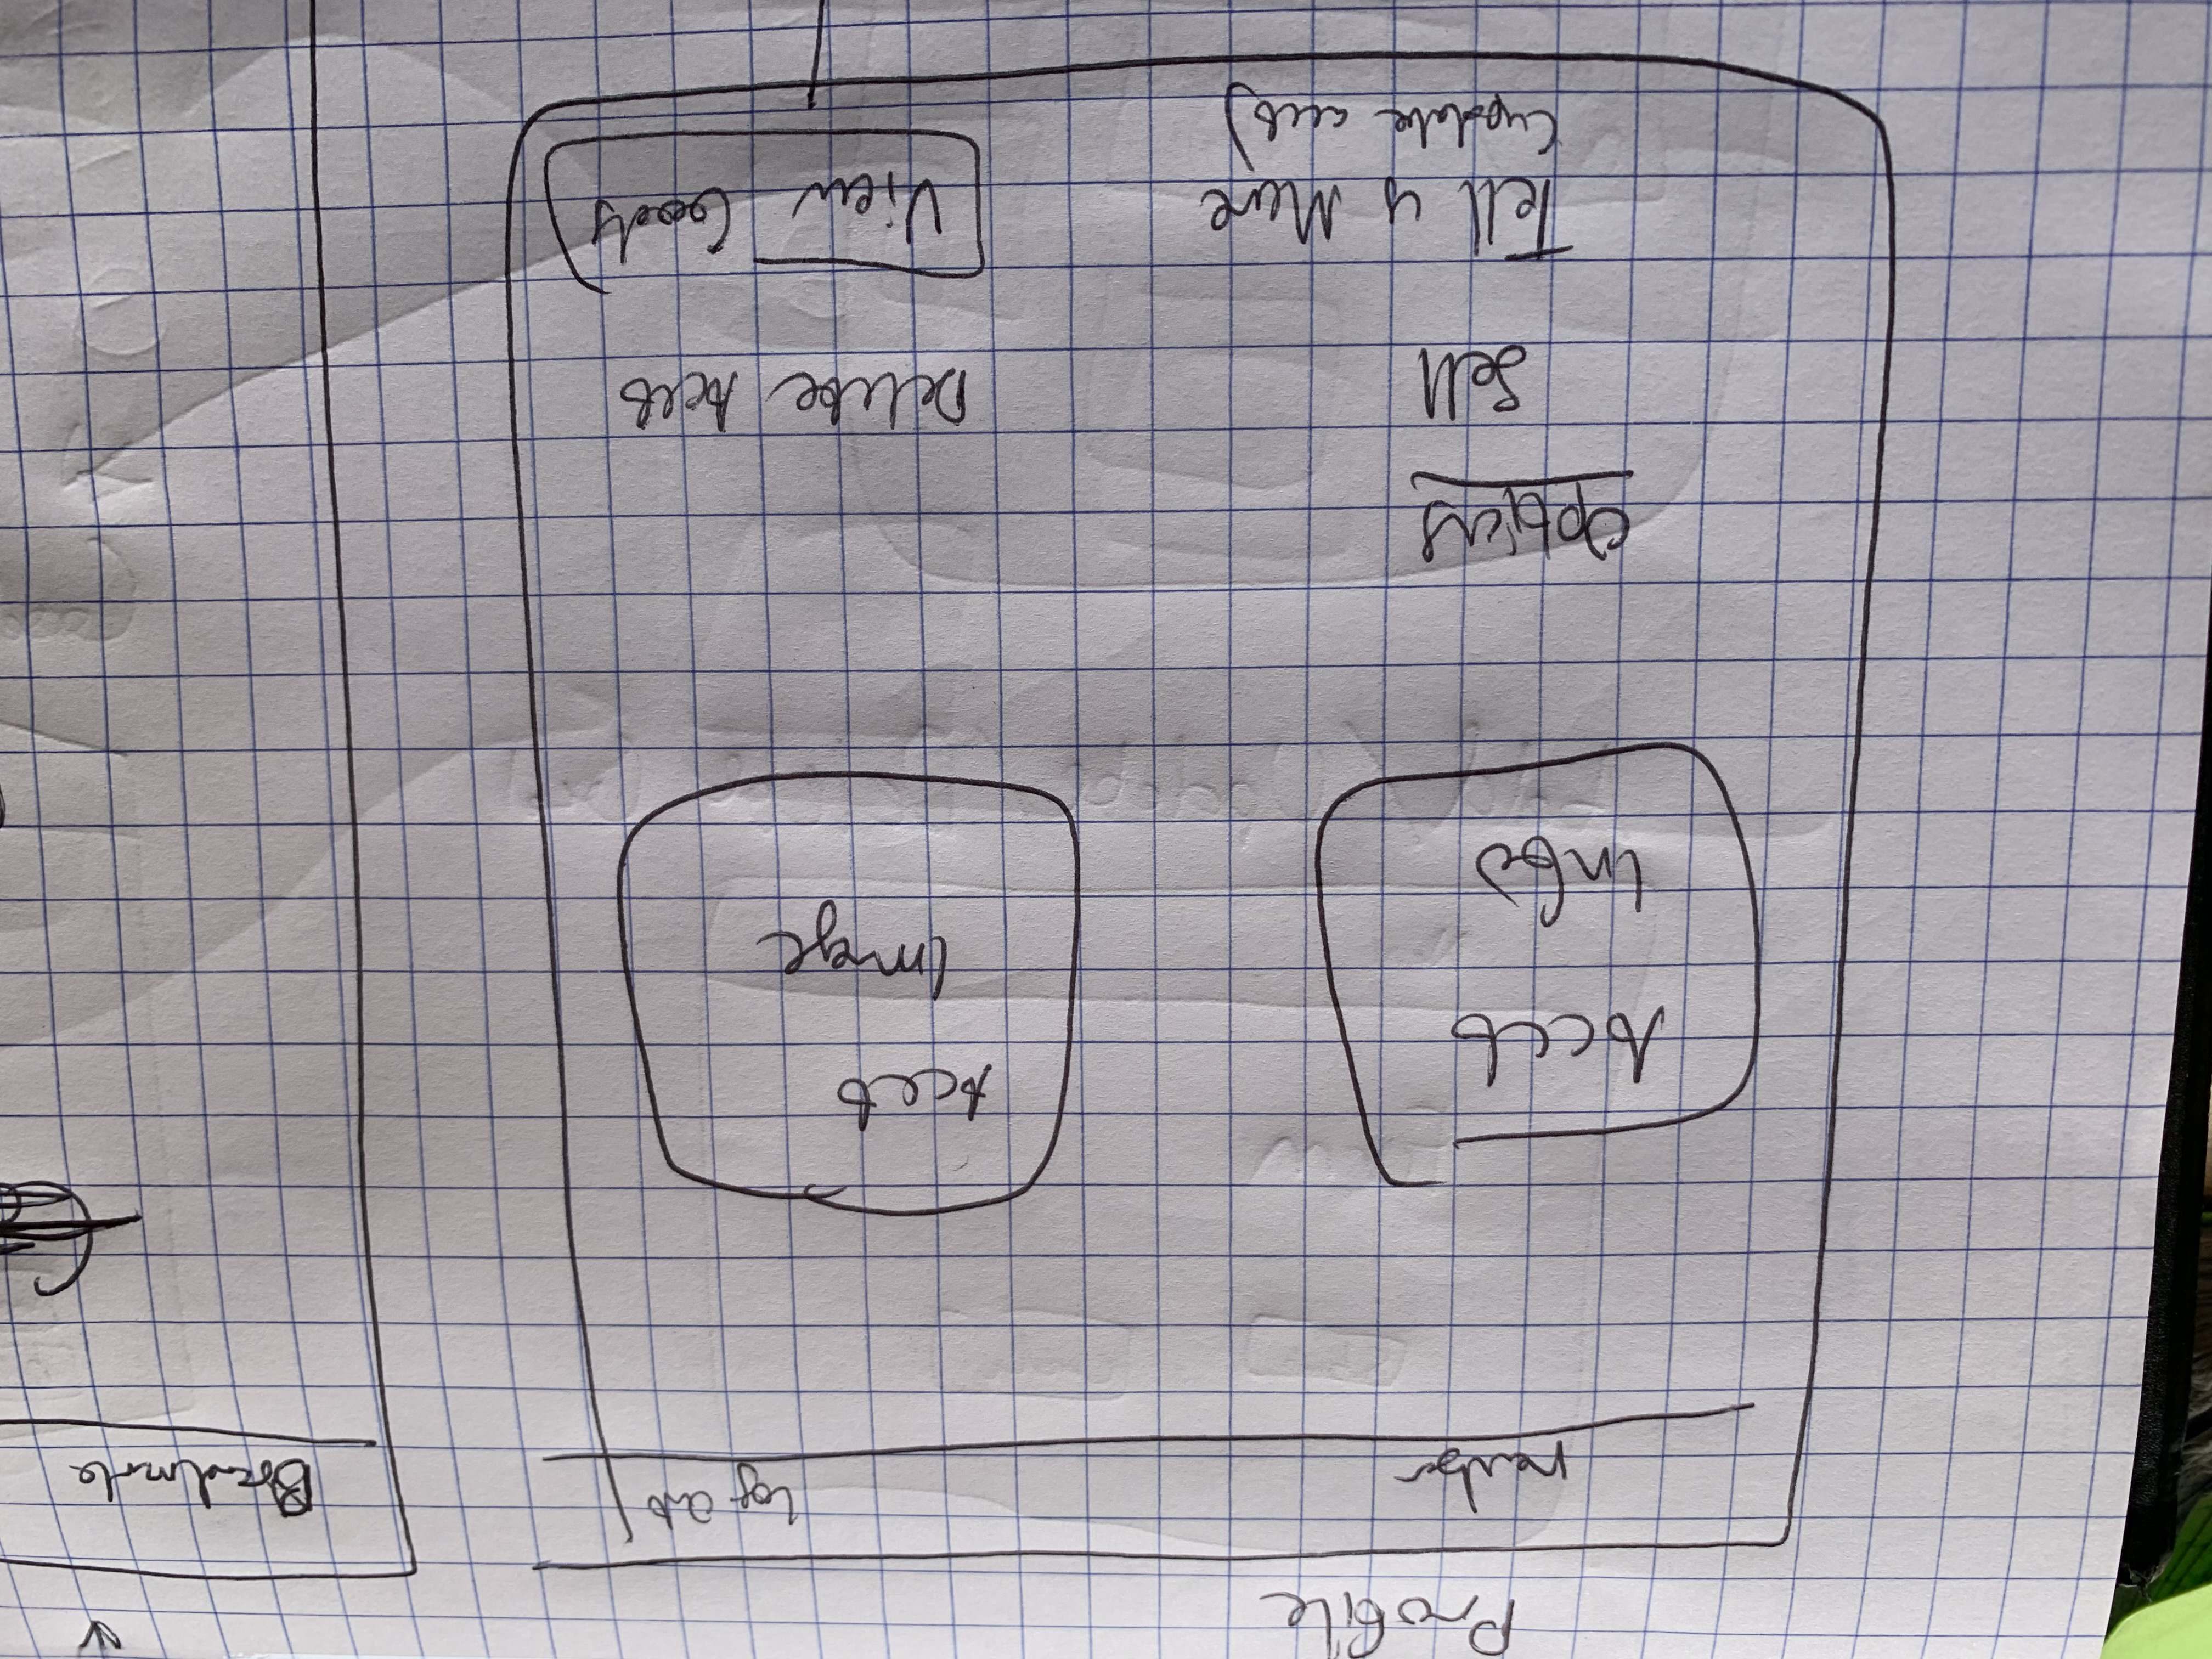 Profile
navbar
Log Out
Acct
Info
Acct
Image
Options
Sell
Delete Acct
Tell us More
(update acct)
View Goods